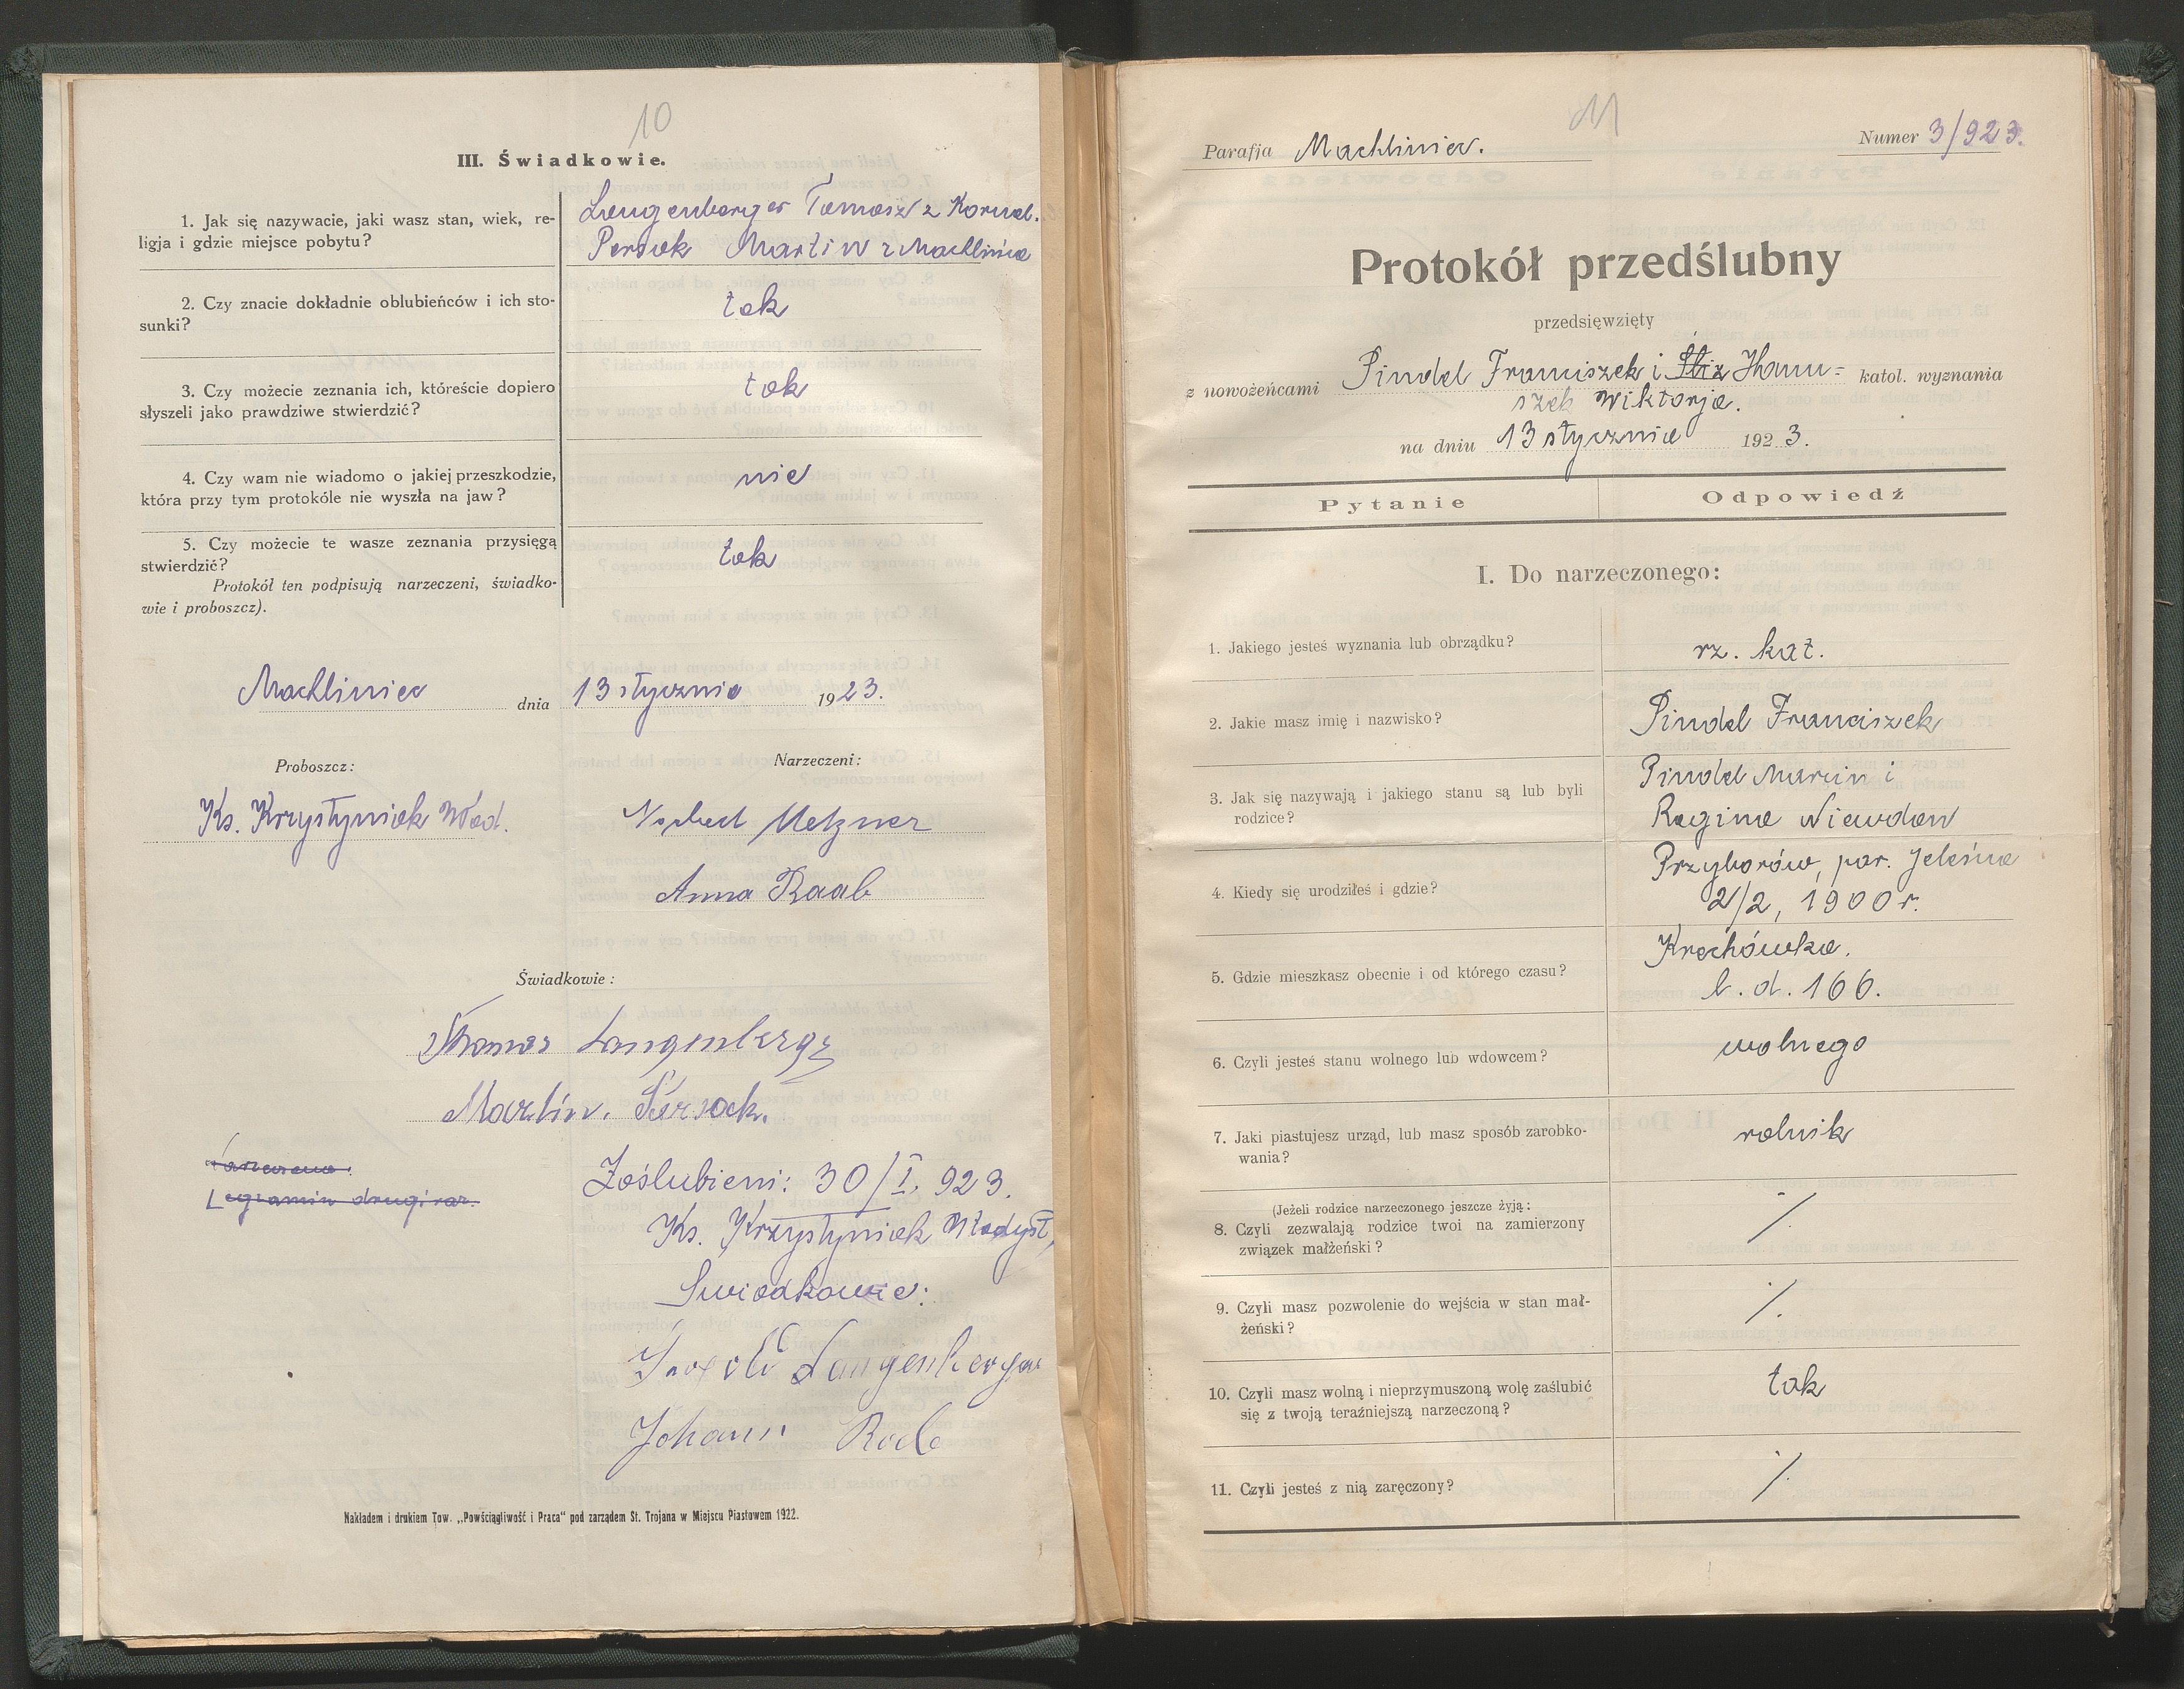 10
III. Świadkowie.
1. Jak się nazywacie, jaki wasz stan, wiek, re-
ligja i gdzie miejsce pobytu?
Langenberger Tomasz z Kornel.
Persak Martin z Machlińca
2. Czy znacie dokładnie oblubieńców i ich sto-
sunki?
tak
3. Czy możecie zeznania ich, któreście dopiero
słyszeli jako prawdziwe stwierdzić?
tak
4. Czy wam nie wiadomo o jakiej przeszkodzie,
która przy tym protokóle nie wyszła na jaw?
nie
5. Czy możecie te wasze zeznania przysięgą
stwierdzić?
tak
Protokół ten podpisują narzeczeni, świadko-
wie i proboszcz).
Machliniec dnia 13 stycznia 1923.
Proboszcz:
Narzeczeni:
Ks. Krzystyniak Wład.
Norbert Metzner
Anna Raab
Świadkowie:
Thomas Langenberg
Martin. Persack.
Zaślubieni: 30/I. 923.
egzamin drugi raz.
Ks. Krzystyniak Władysł,
Swiadkowie:
Langenberger
Johann
Nakładem i drukiem Tow. „Powściągliwość i Praca" pod zarządem St. Trojana w Miejscu Piastowem 1922.
11
Parafja Machliniec.
Numer 3/923.
Protokół przedślubny
przedsięwzięty
z nowożeńcami Pindel Franciszek i Hanu= katol. wyznania
szek Wiktorja.
na dniu 13 stycznia 1923.
Pytanie
Odpowiedź
I. Do narzeczonego:
1. Jakiego jesteś wyznania lub obrządku?
rz. kat.
2. Jakie masz imię i nazwisko?
Pindel Franciszek
3. Jak się nazywają i jakiego stanu są lub byli
rodzice?
Pindel Marcin i
Regina Niewdan
4. Kiedy się urodziłeś i gdzie?
Przyborów, par. Jeleśnia
2/2, 1900 r.
5. Gdzie mieszkasz obecnie i od którego czasu?
Krechówka.
l. d. 166.
6. Czyli jesteś stanu wolnego lub wdowcem?
wolnego
7. Jaki piastujesz urząd, lub masz sposób zarobko-
wania?
rolnik
(Jeżeli rodzice narzeczonego jeszcze żyją:
8. Czyli zezwalają rodzice twoi na zamierzony
związek małżeński?
⁒
9. Czyli masz pozwolenie do wejścia w stan mał-
żeński?
⁒
10. Czyli masz wolną i nieprzymuszoną wolę zaślubić
się z twoją teraźniejszą narzeczoną?
tak
11. Czyli jesteś z nią zaręczony?
⁒